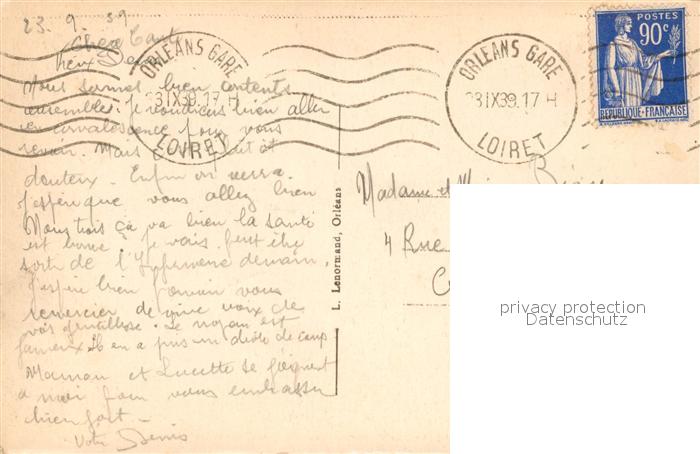 23. 9. 39.
Chère Tante
Nous sommes bien contents
ensemble. Je voudrais bien aller
en convalescence pour vous
revoir. Mais c'
douteux. Enfin on verra.
J'espère que vous allez bien
Nous trois ça va bien la santé
est bonne. Je vais peut être
sortir de l'Infirmerie demain.
J'espère bien pouvoir vous
remercier de vive voix de
vos Le noyau est
fameux il en a pris un drôle de coup
Maman et Lucette se joignent
à moi pour vous embrasser
bien fort -
Votre Denis
ORLÉANS GARE
23 IX 39. 17 H
LOIRET
ORLÉANS GARE
23 IX 39. 17 H
LOIRET
POSTES
90c
RÉPUBLIQUE FRANÇAISE
L. Lenormand, Orléans
Madame et
4 Rue
privacy protection
Datenschutz